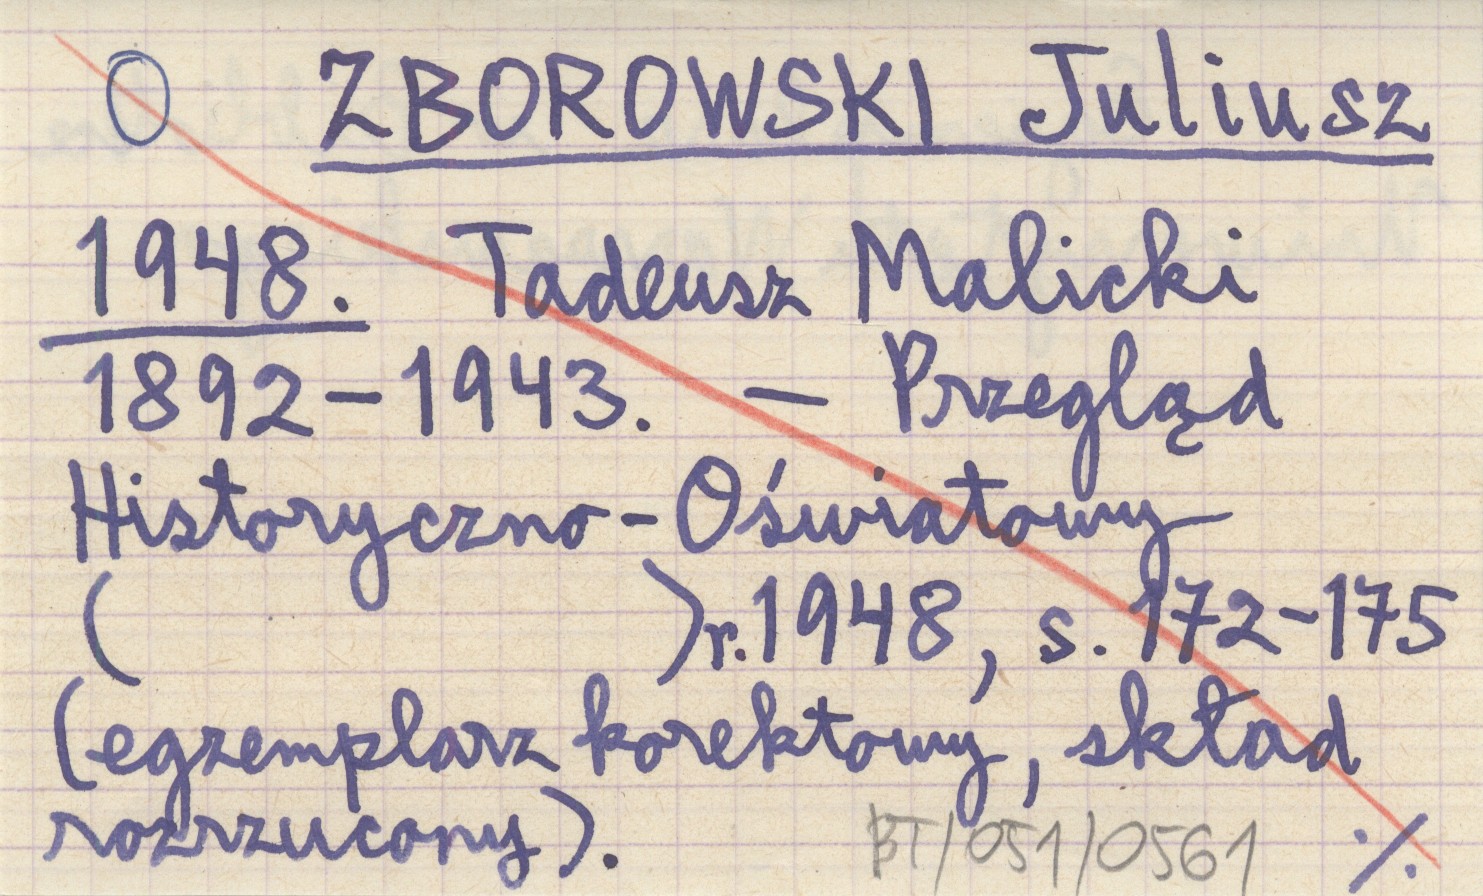 O ZBOROWSKI Juliusz
1948. Tadeusz Malicki
1892-1943. — Przegląd
Historyczno-Oświatowy
( ) r. 1948, s. 172-175
(egzemplarz korektowy, skład
rozrzucony). BT/051/0561 ./.